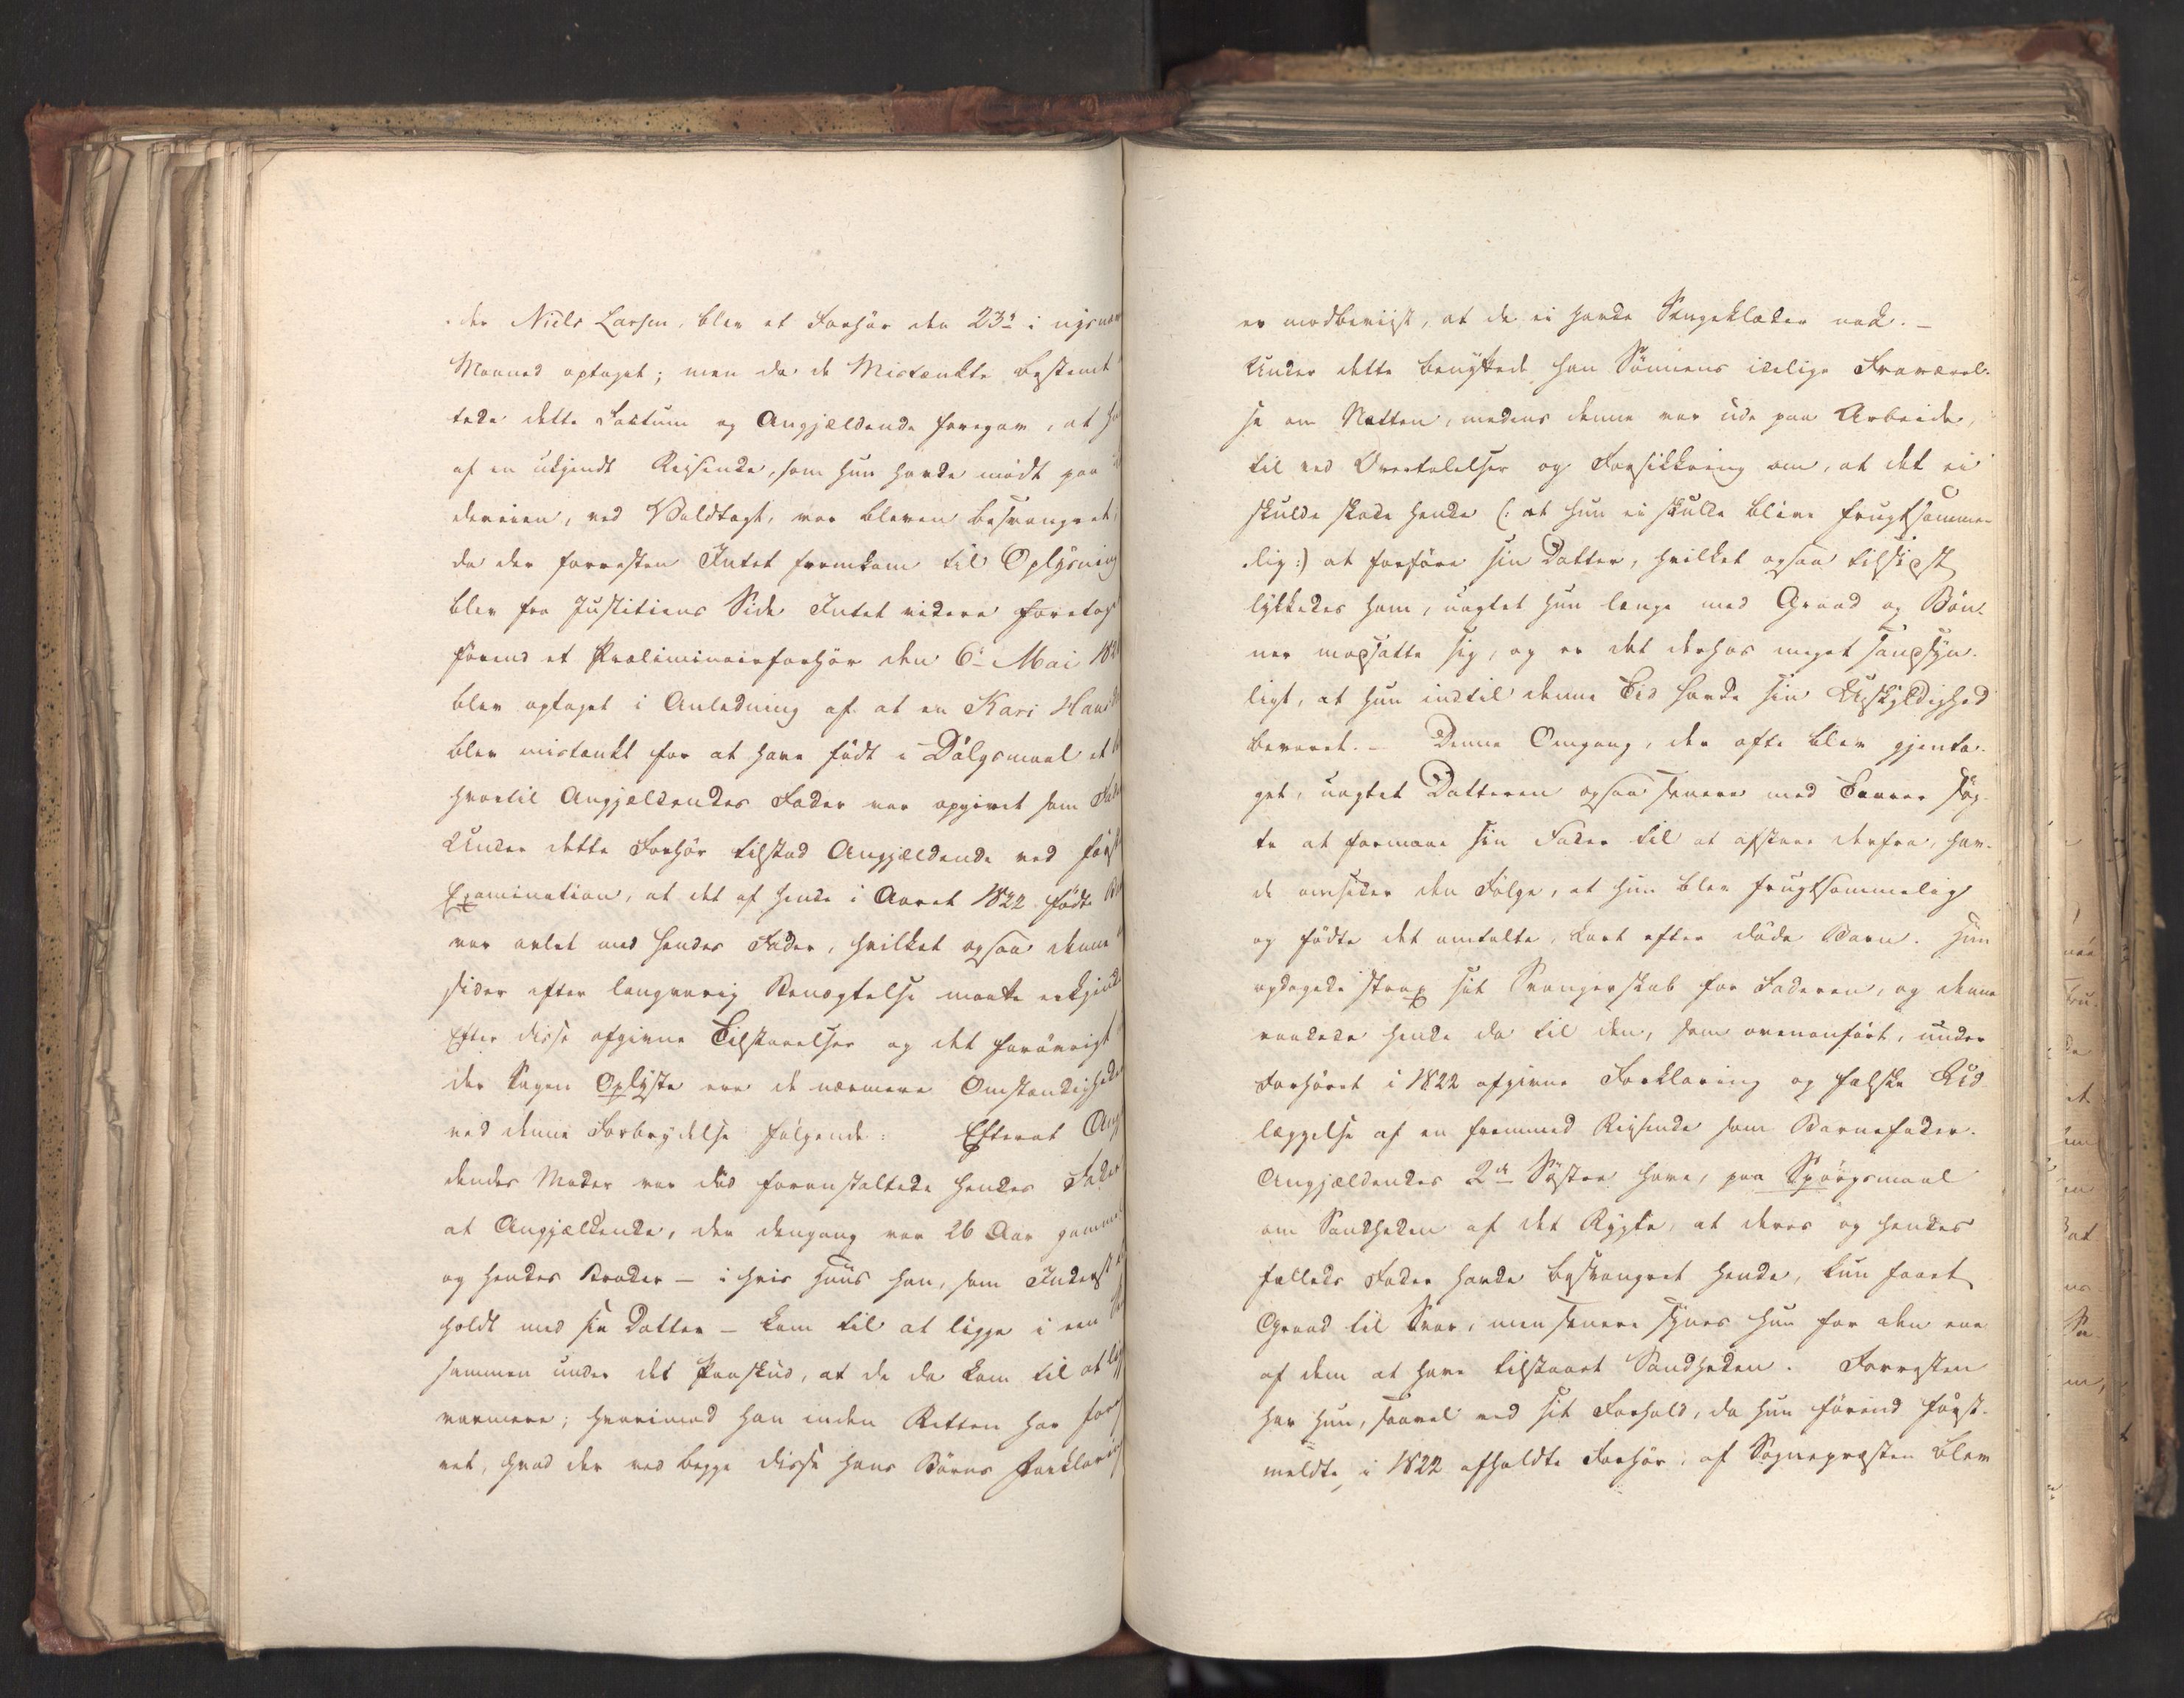 der Niels Larsen, blev et Forhør den 23de i
Maaned optaget; men da de Mistænkte bestemt
tede dette Factum og Angjældende foregav, at
af en ukjendt Reisende, som hun havde mødt paa
derveien, ved Voldtægt, var bleven besvangret,
da der forresten Intet fremkom til Oplysning
blev fra Justitiens Side Intet videre foretaget
førend et Præliminairforhør den 6te Mai
blev optaget i Anledning af at en Kari Hans
blev mistænkt for at have født i Dølgsmaal et
hvortil Angjældendes Fader var opgivet som
Under dette Forhør tilstod Angjældende ved
Examination, at det af hende i Aaret 1822 fødte
var avlet med hendes Fader, hvilket ogsaa denne
sider efter langvarig Benægtelse maatte erkjende
Efter disse afgivne Tilstaaelser og det forøvrigt
der Sagen Oplyste ere de nærmere Omstændigheder
ved denne Forbrydelse følgende: Efterat
dendes Moder var død foranstaltede hendes Fader
at Angjældende, der dengang var 26 Aar gammel
og hendes Broder – i hvis Huus han, som Inderst
holdt med sin Datter – kom til at ligge i een
sammen under det Paaskud, at de da kom til at
varmere; hvorimod han inden Retten har
ret, hvad der ved begge disse hans Børns
er modbeviist, at de ei havde Sengeklæder nok. –
Under dette benyttede han Sønnens idelige Fraværel-
se om Natten, medens denne var ude paa Arbeide,
til ved Overtalelser og Forsikkring om, at det ei
skulde skade hende (: at hun ei skulde blive frugtsomme-
lig :) at forføre sin Datter, hvilket ogsaa tilsidst
lykkedes ham, uagtet hun længe med Graad og Bøn-
ner modsatte sig, og er det derhos meget sandsyn-
ligt, at hun indtil denne Tid havde sin Uskyldighed
bevaret. – Denne Omgang, der ofte blev gjenta-
get, uagtet Datteren ogsaa senere med Taarer søg-
te at formaae sin Fader til at afstaae derfra, hav-
de omsider den Følge, at hun blev frugtsommelig
og fødte det omtalte, kort efter døde Barn. Hun
opdagede strax sit Svangerskab for Faderen, og denne
raadede hende da til den, som ovenanført, under
Forhøret i 1822 afgivne Forklaring og falske Ud
læggelse af en fremmed Reisende som Barnefader.
Angjældendes 2de Søstre have, paa Spørgsmaal
om Sandheden af det Rygte, at deres og hendes
fælleds Fader havde besvangret hende, kun faaet
Graad til Svar, men senere synes hun for den ene
af dem at have tilstaaet Sandheden. Forresten
har hun, saavel ved sit Forhold, da hun førend først-
meldte, i 1822 afholdte Forhør, af Sognepræsten blev